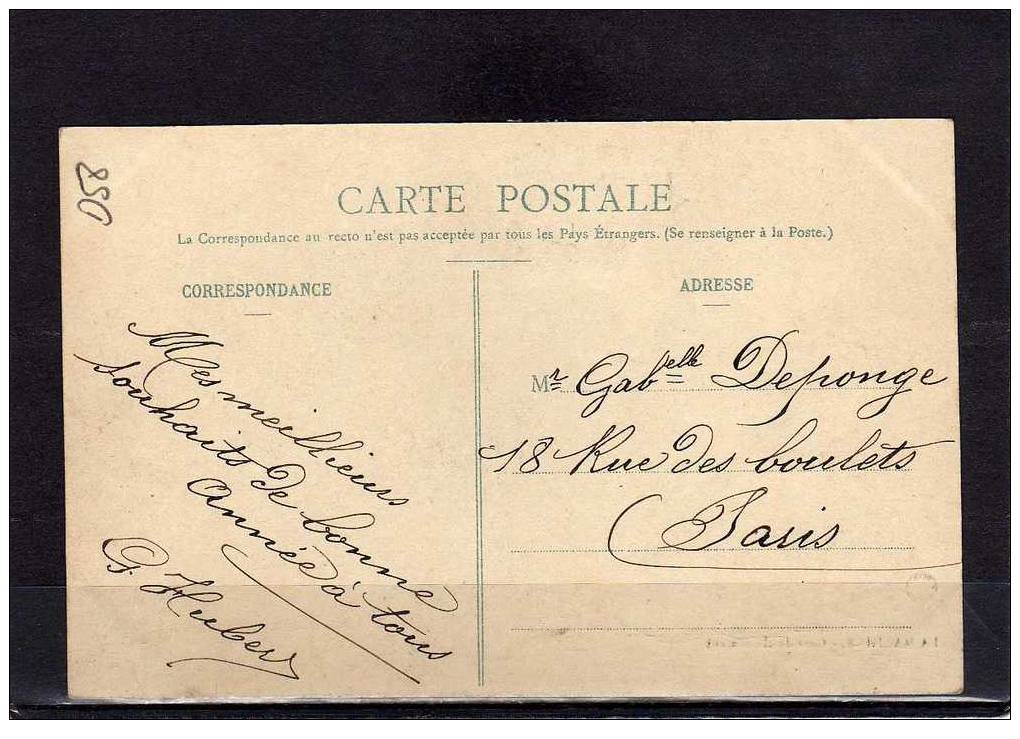 850
CARTE POSTALE
La Correspondance au recto n'est pas acceptée par tous les Pays Étrangers. (Se renseigner à la Poste.)
CORRESPONDANCE
Mes meilleurs
souhaits de bonne
année à tous
G. Hubert
ADRESSE
Mr Gabrielle Deponge
18 Rue des boulets
Paris